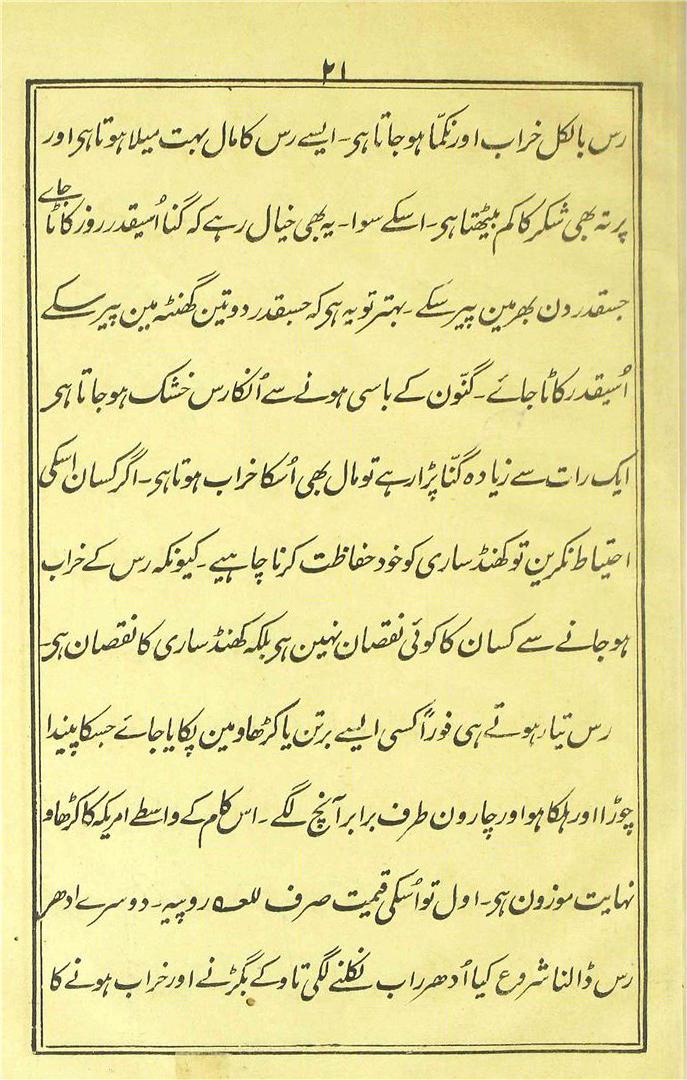 ۲۱
رس بالکل خراب اور نکمّا ہوجاتا ہی۔ ایسے رس کا مال بہت میلا ہوتا ہی اور
پرتہ بھی شکر کا کم بیٹھتا ہی۔ اسکے سوا۔ یہ بھی خیال رہے کہ گنا اُسیقدر روز کاٹا جاے
جسقدر دن بھر مین پیر سکے۔ بہتر تو یہ ہی کہ جسقدر دو تین گھنٹہ مین پیر سکے
اُسیقدر کاٹا جائے۔ گنّون کے باسی ہونے سے اُنکا رس خشک ہوجاتا ہی
ایک رات سے زیادہ گنّا پڑا رہے تو مال بھی اُسکا خراب ہوتا ہی۔ اگر کسان اسکی
احتیاط نکرین تو کھنڈساری کو خود حفاظت کرنا چاہیے۔ کیونکہ رس کے خراب
ہوجانے سے کسان کا کوئی نقصان نہین ہی بلکہ کھنڈساری کا نقصان ہی۔
رس تیار ہوتے ہی فوراً کسی ایسے برتن یا کڑھاو مین پکایا جاے جسکا پیندا
چوڑا اور ہلکا ہو اور چارون طرف برابر آنچ لگے۔ اس کام کے واسطے امریکہ کا کڑھاو
نہایت موزون ہی۔ اول تو اُسکی قیمت صرف روپیہ۔ دوسرے ادھر
رس ڈالنا شروع کیا اُدھر راب نکلنے لگی تاو کے بگڑنے اور خراب ہونے کا